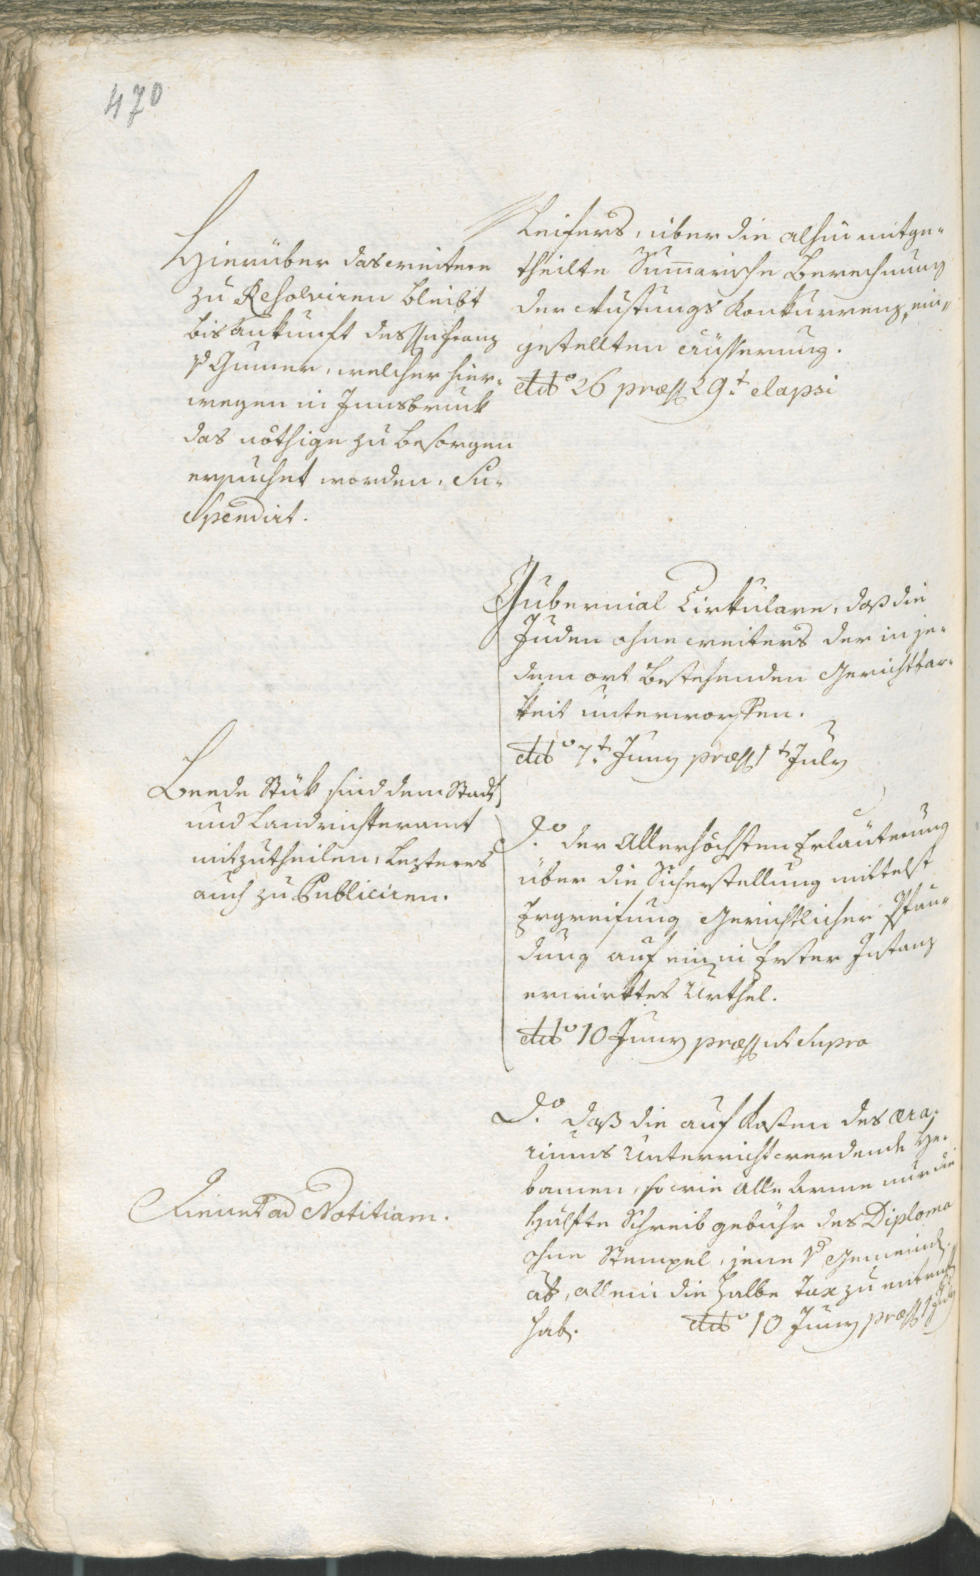 470
Hierüber das weitere
zu Resolviren bleibt
bis Ankunft des H Franz
v Gumer, welcher hier-
wegen in Innsbruck
das nöthige zu besorgen
ersuchet worden, Su-
spendirt.
Reifers, über die alhin mitge-
theilte Sum̅arische Berechnung
der Rustungs Konkurrenz, ein-
gestellten aüsserung.
dto 26 præss 29t elapsi
Gubernial Cirkulare, daß die
Juden ohne weiters der in je-
dem ort bestehenden Gerichtbar-
keit unterworfen.
dto 7t Juny præss 1t July
Beede Stük sind dem Stadt
und Landrichteramt
mitzutheilen, lezteres
auch zu Publiciren.
do. der Allerhöchsten Erlaüterung
über die Sicherstellung mittelst
Ergreifung Gerichtlicher Pfän-
dung auf ein in Erster Instanz
erwirktes Urthel.
dto 10 Juny præss ut Supra
do. daß die auf Kosten des æra-
riums Unterricht werdende He-
bamen, sowie alle Arme nur die
Hälfte Schreibgebühr des Diploma
ohne Stempel, jene v Gemeind
aber, allein die halbe Tax zu entricht
hab. dto 10 Juny præss 1 July
Dienet ad Notitiam.